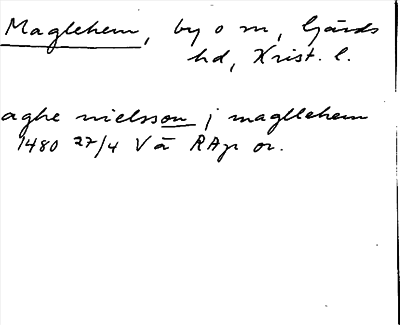 Maglehem, by o sn, Gärds
hd, Krist. l.
aghe nielsson j magllehem
1480 27/4 Vä RAp or.